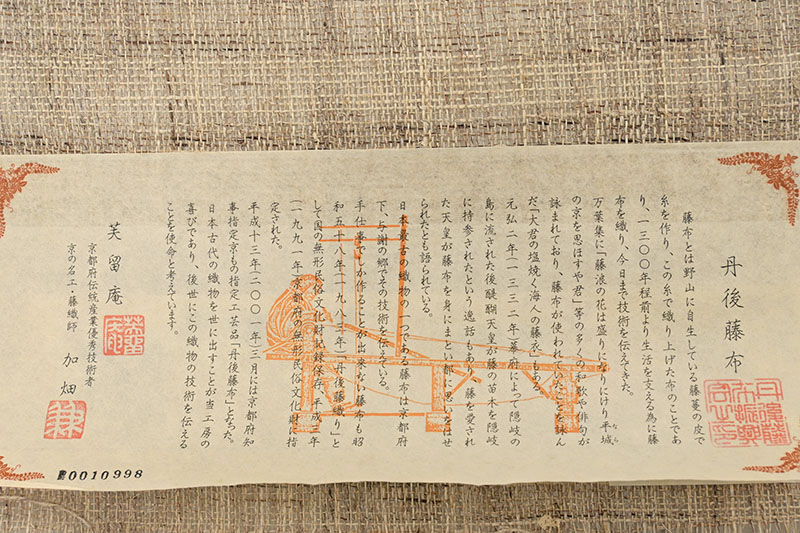 丹後藤布
藤布とは野山に自生している藤蔓の皮で
糸を作り、この糸で織り上げた布のことであ
り、一三〇〇年程前より生活を支える為に藤
布を織り、今日まで技術を伝えてきた。
万葉集に「藤浪の花は盛りになりにけり平城
なら
の京を思ほすや君」等の多くの和歌や俳句が
詠まれており、藤布が使われていたことを詠ん
だ「大君の塩焼く海人の藤衣」もある
元弘二年(一三三二年)幕府によって隠岐の
島に流された後醍醐天皇が藤の苗木を隠岐
に持参されたという逸話もあり、藤を愛され
た天皇が藤布を身にまとい都に思いをはせ
られたとも語られている。
日本最古の織物の一つである藤布は京都府
下、与謝の郷でその技術を伝えている。
手仕事でしか作ることが出来ない藤布も昭
和五十八年(一九八三年)「丹後藤織り」と
して国の無形民俗文化財記録保存、平成三年
(一九九一年)京都府の無形民俗文化財に指
定された。
平成十三年(二〇〇一年)三月には京都府知
事指定京もの指定工芸品「丹後藤布」となった。
日本古代の織物を世に出すことが当工房の
喜びであり、後世にこの織物の技術を伝える
ことを使命と考えています。
芙留庵
京都府伝統産業優秀技術者
京の名工・藤織師 加畑
0010998